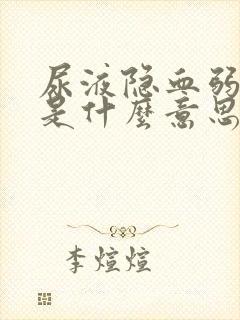 尿液隐血弱
是什麼意思
李煊煊